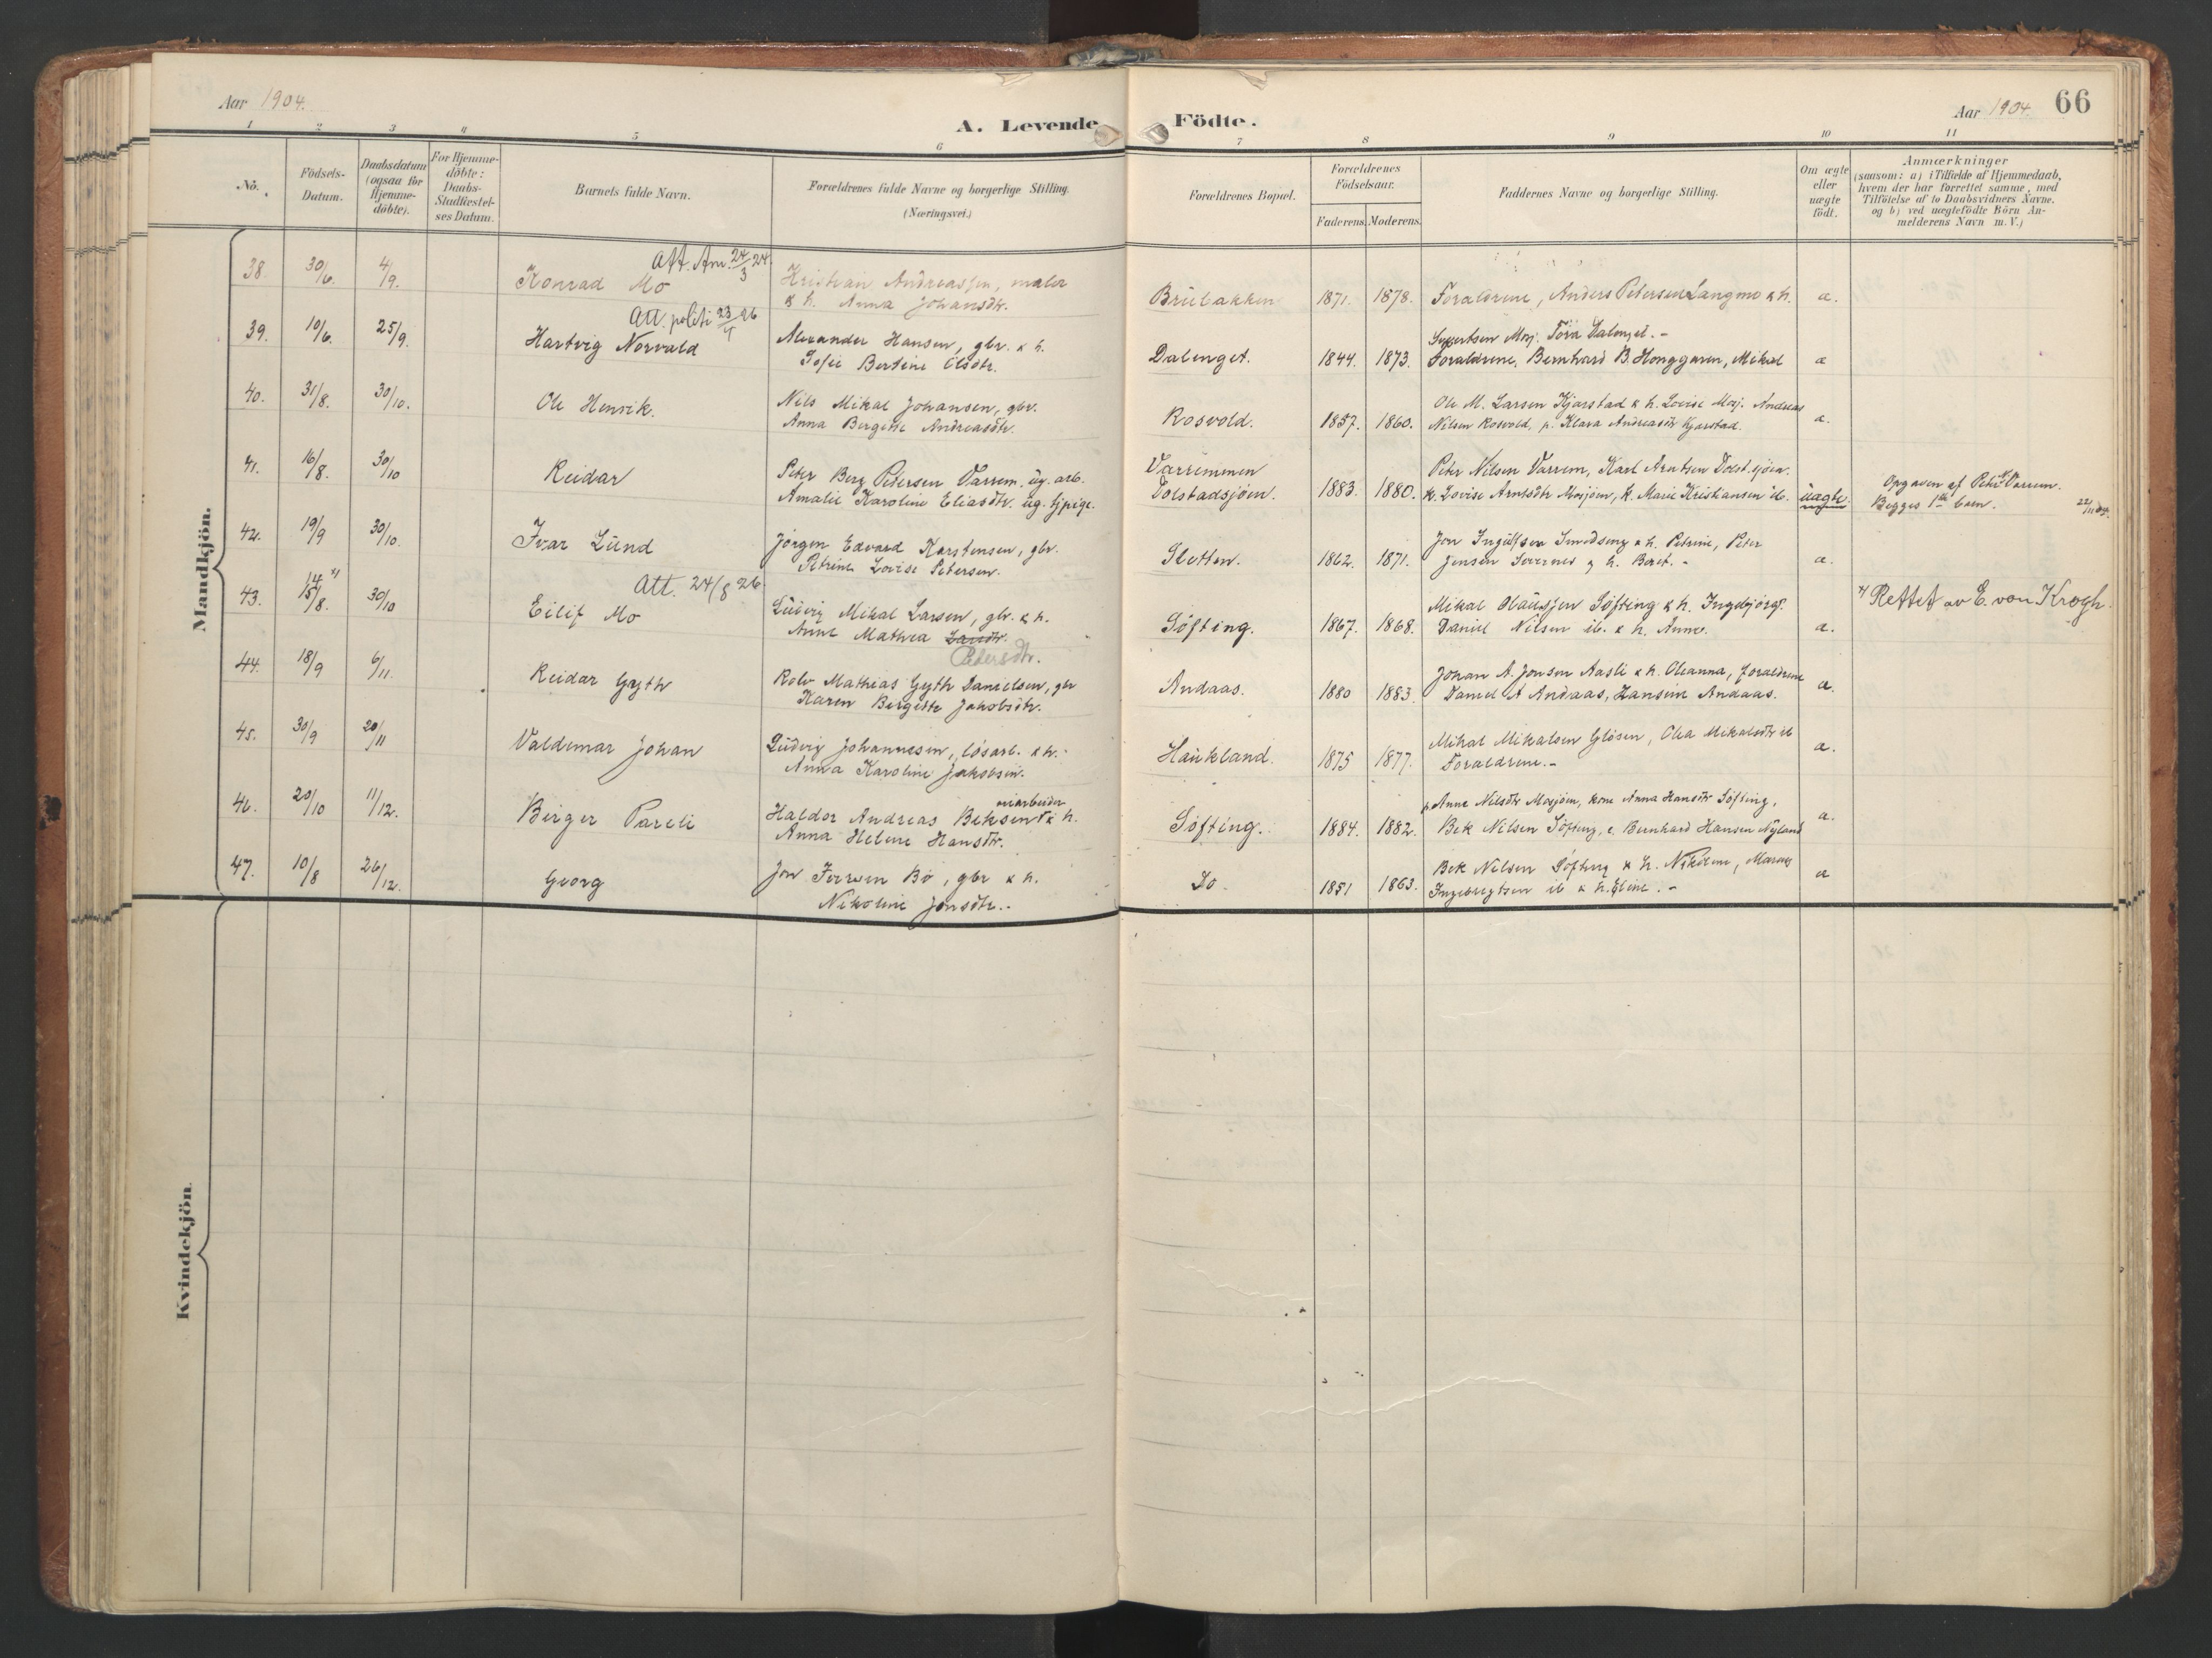 Aar 1904.
A. Levende Födte.
Aar 1904. 66
1 2 3 4 5 6 7 8 9 10 11
No.
Födsels-Datum.
Daabsdatum (ogsaa for Hjemme-döbte).
For Hjemme-döbte: Daabs-Stadfæstel-ses Datum.
Barnets fulde Navn.
Forældrenes fulde Navne og borgerlige Stilling. (Næringsvei.)
Forældrenes Bopæl.
Forældrenes Födselsaar.
Faderens. Moderens.
Faddernes Navne og borgerlige Stilling.
Om ægte eller uægte födt.
Anmærkninger
(saasom: a) i Tilfælde af Hjemmedaab,
hvem der har forrettet samme, med
Tilföielse af to Daabsvidners Navne.
og b) ved uægtefödte Börn An-
melderens Navn m. V.)
Mandkjön.
Att. Am. 24/3 24
38. 30/6. 4/9. Konrad Mo Kristian Andreassen, maler
& h. Anna Johansdtr. Brulakken 1871. 1878. Forældrene, Anders Petersen Langmo & h. a.
Att. politi 23/4 26
39. 10/6. 25/9. Hartvig Norvald Alexander Hansen, gbr. & h.
Sofie Bertine Olsdtr. Dalenget. 1844. 1873. Sivertsen Mosj. Tora Dalenget. -
Forældrene, Bernhard B. Honggaren, Mikal a
40. 31/8. 30/10. Ole Henrik. Nils Mikal Johansen, gbr.
Anna Bergitte Andreasdtr. Rosvold. 1857. 1860. Ole M. Larsen Kjærstad & h. Lovise Mosj. Andreas
Nilsen Rosvold, p. Klara Andreasdtr Kjærstad. a.
41. 16/8. 30/10 Reidar Peter Berg Petersen Varrem. ug. arb.
Amalie Karoline Eliasdtr. ug. tjpige. Varremmen
Dolstadsjøen. 1883. 1880. Peter Nilsen Varrem, Karl Arntsen Dolst.sjøen.
k. Lovise Arntsdtr Mosjøen, K. Marie Kristiansen ib. uægte. Opgaven af Peter N. Varrem.
Begges 1ste barn. 22/11 04.
42. 19/9 30/10. Ivar Lund Jørgen Edvard Karstensen, gbr.
Petrine Lovise Petersen. Sletten. 1862. 1871. Jon Ingulfsen Smedseng & h. Petrine, Peter
Jensen & h. Beret. - a.
Att. 24/8 26.
43. 14 15/8. 30/10 Eilif Mo Ludvig Mikal Larsen, gbr. & h.
Anne Mathea Larsdtr.
Pedersdtr. Søfting. 1867. 1868. Mikal Olaussen Søfting & h. Ingebjørg.
Daniel Nilsen ib. & h. Anne. a. Rettet av E. von Krogh.
44. 18/9 6/11. Reidar Gyth Rolv Mathias Gyth Danielsen, gbr
Karen Bergitte Jakobsdtr. Andaas. 1880 1883. Johan A. Jonsen Aasli & h. Oleanna, forældrene
Daniel A Andaas, Hansine Andaas. a.
45. 30/9 20/11 Valdemar Johan Ludvig Johannesen, løsarb. & h.
Anna Karoline Jakobsen. Haukland. 1875 1877. Mikal Mikalsen Glosen, Olea Mikalsdtr ib
Forældrene. - a.
46. 20/10 11/12. Birger Pareli Haldor Andreas Beksen & h.
Anna Helene Hansdtr. Søfting. 1884. 1882. p. Anne Nilsdtr Mosjøen, kone Anna Hansdtr Søfting,
Bek Nilsen Søfting, e. Bernhard Hansen Nyland a.
47. 10/8 26/12. Georg Jon Iversen Bø, gbr & h.
Nikoline Jonsdtr. - Do. 1851 1863. Bek Nilsen Søfting & h. Nikoline, Marius
Ingebrigtsen ib & h. Eline. - a
Kvindekjön.